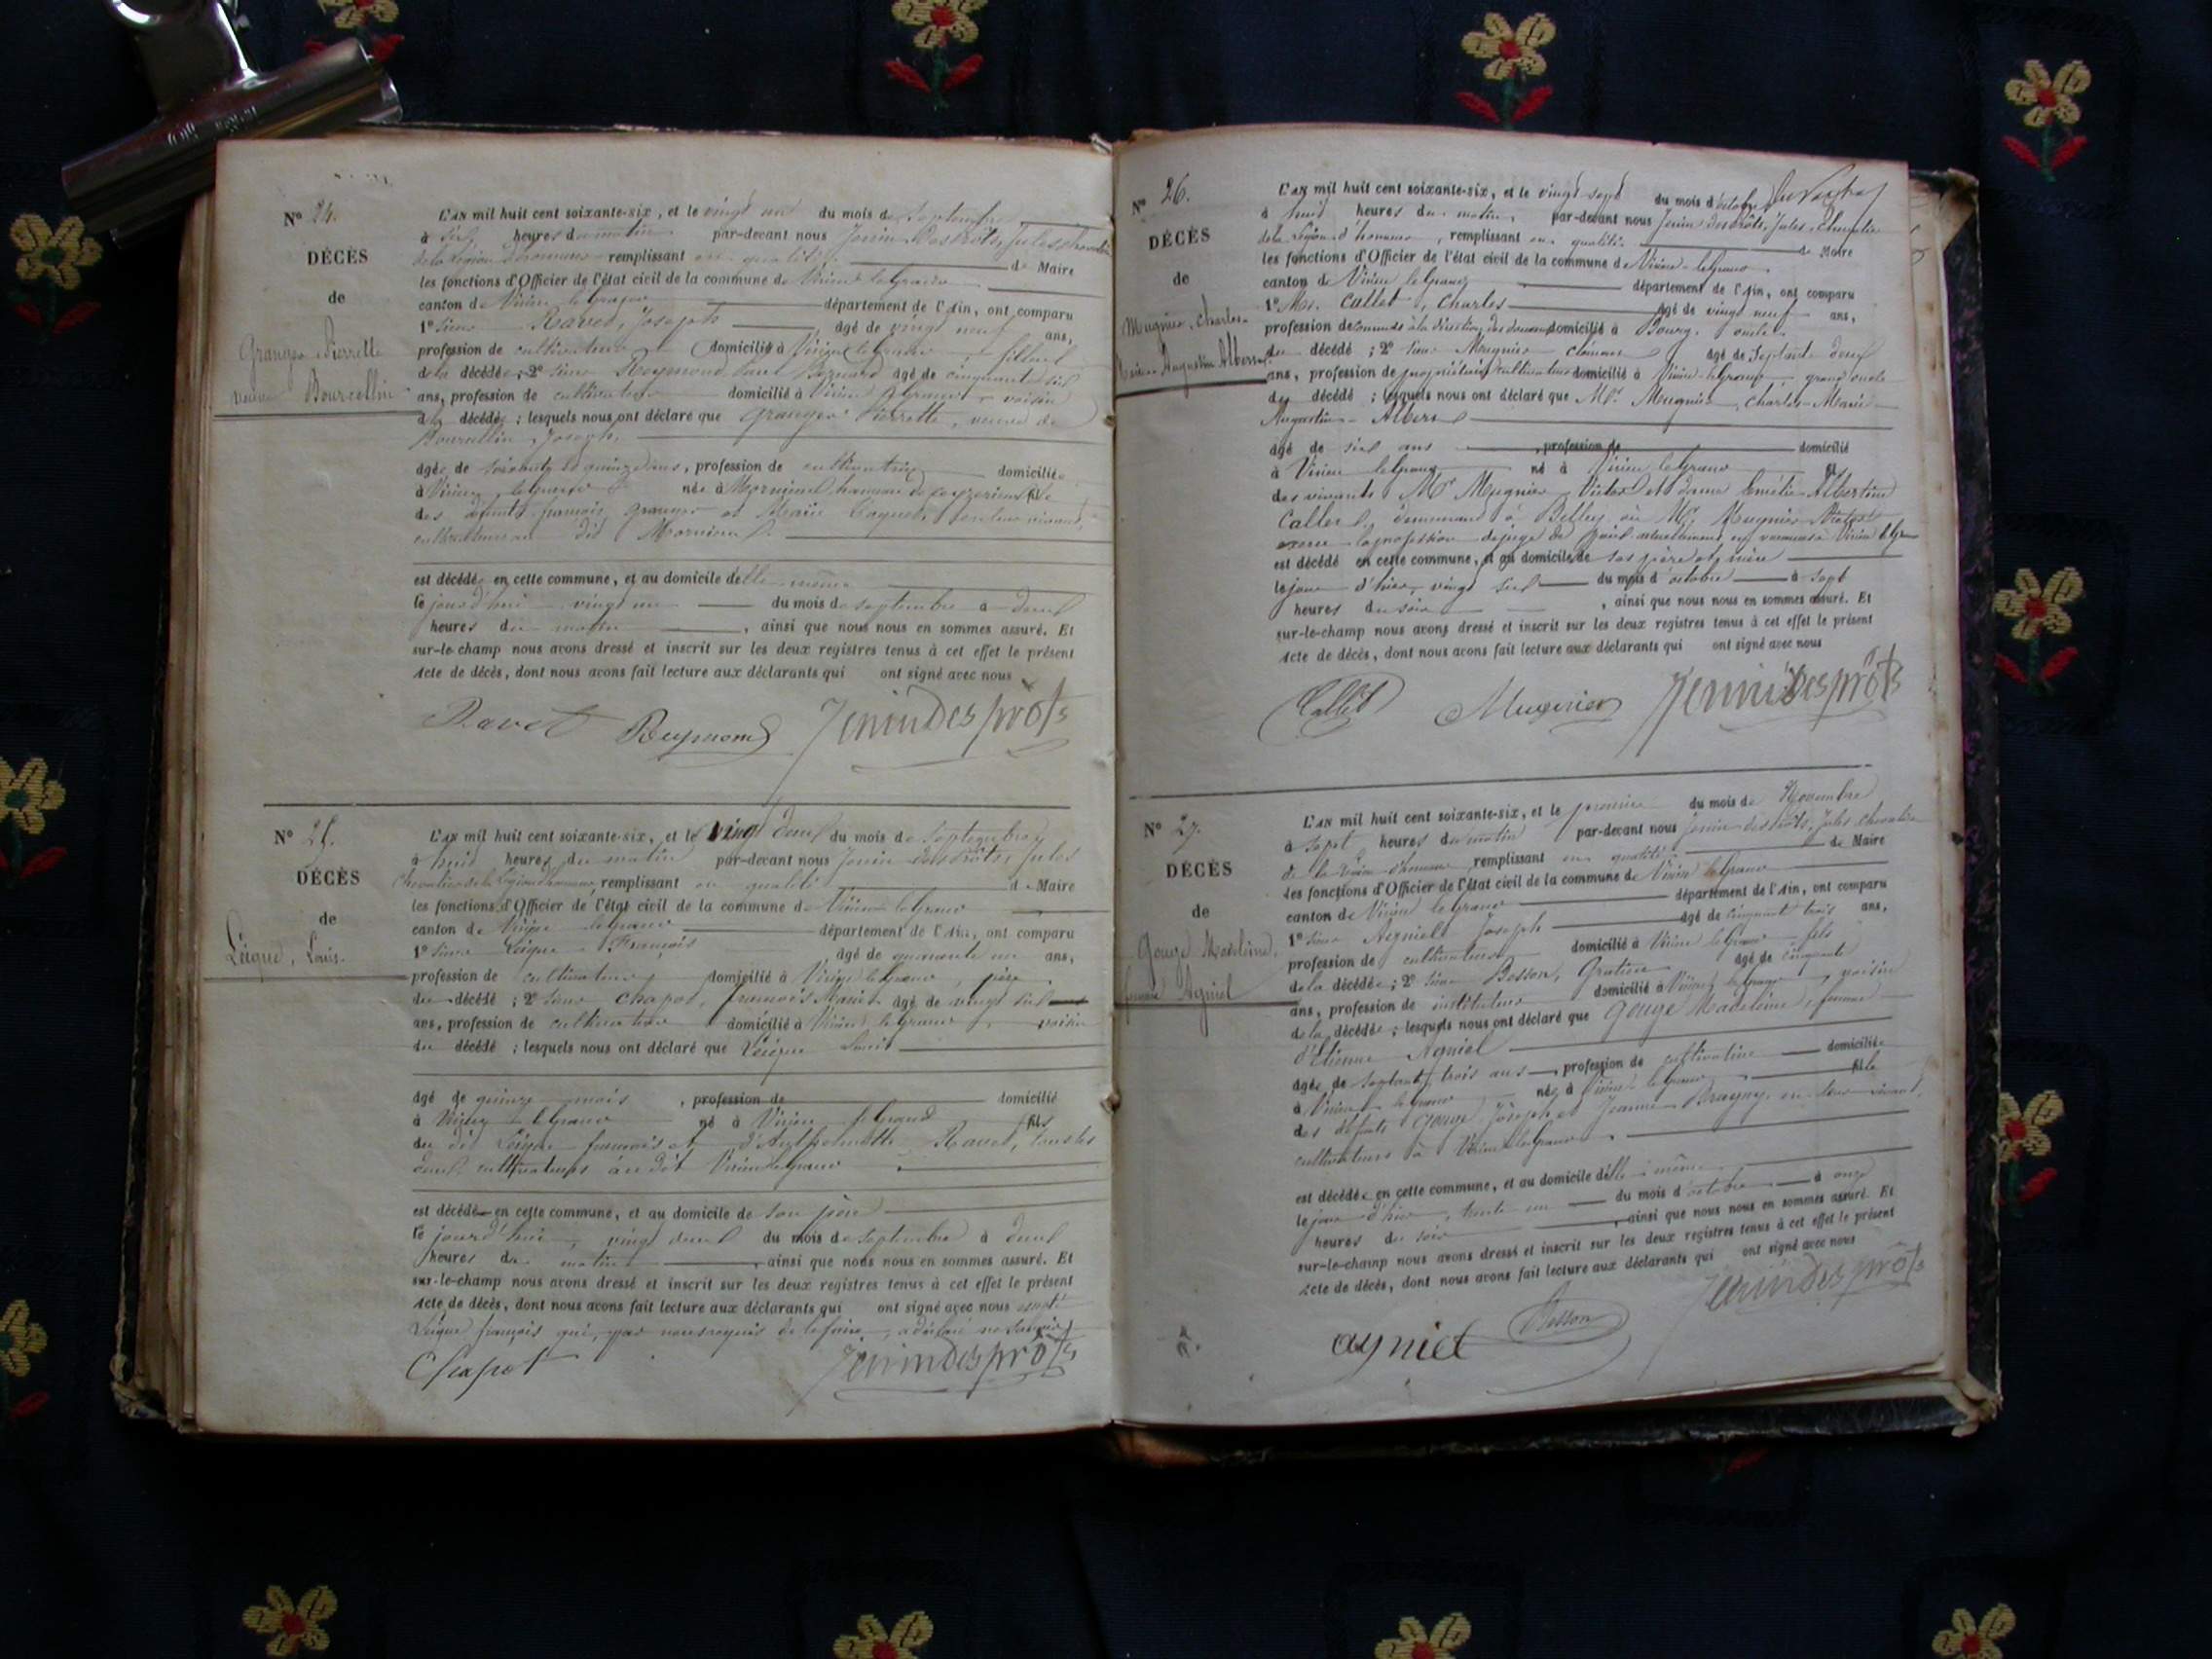 N° 24.
DÉCÈS
de
Granger Pierrette
veuve Bourcellin
L'AN mil huit cent soixante-six, et le vingt un du mois de Septembre
à six heures du matin par-devant nous Jenin Desprôts, Jules chevalier
de la Légion d'honneur remplissant en qualité de Maire
les fonctions d'Officier de l'état civil de la commune de Virieu le Grand
canton de Virieu le Grand département de l'Ain, ont comparu
1° Sieur Ravet, Joseph âgé de vingt neuf ans,
profession de cultivateur domicilié à Virieu le Grand, filleul
de la décédée; 2° Sieur Reymond âgé de cinquante six
ans, profession de cultivateur domicilié à Virieu le Grand, voisin
de la décédée; lesquels nous ont déclaré que Granger Pierrette, veuve de
Bourcellin, Joseph,
âgée de soixante et quinze ans, profession de cultivatrice domiciliée
à Virieu le Grand née à hameau de fille
des défunts françois Granger et Marie en leur vivant
cultivateurs au dit
est décédée en cette commune, et au domicile d'elle même
le jourd'hui vingt un du mois de septembre à deux
heures du matin, ainsi que nous nous en sommes assuré. Et
sur-le-champ nous avons dressé et inscrit sur les deux registres tenus à cet effet le présent
Acte de décès, dont nous avons fait lecture aux déclarants qui ont signé avec nous
Ravet Reymond Jenin Desprôts
N° 25.
DÉCÈS
de
Léique, Louis.
L'AN mil huit cent soixante-six, et le vingt deux du mois de Septembre
à huit heures du matin par-devant nous Jenin Desprôts, Jules
chevalier de la Légion d'honneur, remplissant en qualité de Maire
les fonctions d'Officier de l'état civil de la commune de Virieu le Grand
canton de Virieu le Grand département de l'Ain, ont comparu
1° Sieur Léique, François âgé de quarante un ans,
profession de cultivateur domicilié à Virieu le Grand, père
du décédé; 2° Sieur Chapot, françois Marie âgé de vingt six
ans, profession de cultivateur domicilié à Virieu le Grand, voisin
du décédé; lesquels nous ont déclaré que Léique Louis
âgé de quinze mois, profession de domicilié
à Virieu le Grand né à Virieu le Grand fils
du dit Léique françois et d'Anthelmette Ravet, tous les
deux cultivateurs au dit Virieu le Grand
est décédé en cette commune, et au domicile de son père
le jourd'hui, vingt deux du mois de Septembre à deux
heures du matin, ainsi que nous nous en sommes assuré. Et
sur-le-champ nous avons dressé et inscrit sur les deux registres tenus à cet effet le présent
Acte de décès, dont nous avons fait lecture aux déclarants qui ont signé avec nous excepté
Léique françois qui, par nous requis de le faire, a déclaré ne savoir
Chapot Jenin Desprôts
N° 26.
DÉCÈS
de
Mugnier, Charles
Marie Augustin Albert
L'AN mil huit cent soixante-six, et le vingt sept du mois d'octobre
à huit heures du matin, par-devant nous Jenin Desprôts, Jules, Chevalier
de la Légion d'honneur, remplissant en qualité de Maire
les fonctions d'Officier de l'état civil de la commune de Virieu-le-Grand
canton de Virieu le Grand département de l'Ain, ont comparu
1° Mr. Callet, Charles âgé de vingt neuf ans,
profession de commis à la direction des domaines domicilié à Bourg, oncle
du décédé; 2° Sieur Mugnier âgé de septante deux
ans, profession de propriétaire cultivateur domicilié à Virieu-le-Grand, grand oncle
du décédé; lesquels nous ont déclaré que Mr. Mugnier, Charles-Marie
Augustin-Albert
âgé de six ans, profession de domicilié
à Virieu le Grand né à Virieu le Grand fils
des vivants Mr Mugnier Victor et dame Emélie-Albertine
Callet, demeurant à Belley où Mr. Mugnier Victor
exerce la profession de juge de paix actuellement en vacances à Virieu le Grand
est décédé en cette commune, et au domicile de ses père et mère
le jour d'hier, vingt six du mois d'octobre à sept
heures du soir, ainsi que nous nous en sommes assuré. Et
sur-le-champ nous avons dressé et inscrit sur les deux registres tenus à cet effet le présent
Acte de décès, dont nous avons fait lecture aux déclarants qui ont signé avec nous
Callet Mugnier Jenin Desprôts
N° 27.
DÉCÈS
de
Gouge Madeleine,
femme Agniel
L'AN mil huit cent soixante-six, et le premier du mois de Novembre
à sept heures du matin par-devant nous Jenin-desprôts, Jules, chevalier
de la Légion d'honneur, remplissant en qualité de Maire
les fonctions d'Officier de l'état civil de la commune de Virieu le Grand
canton de Virieu le Grand département de l'Ain, ont comparu
1° Sieur Agniel Joseph âgé de cinquante trois ans,
profession de cultivateur domicilié à Virieu le Grand fils
de la décédée; 2° Sieur Besson, Gratien âgé de cinquante
ans, profession de instituteur domicilié à Virieu le Grand, voisin
de la décédée; lesquels nous ont déclaré que Gouge Madeleine, femme
d'Etienne Agniel
âgée de septante trois ans, profession de cultivatrice domiciliée
à Virieu le Grand née à Virieu le Grand fille
des défunts Gouge Joseph et Jeanne en leur vivant
cultivateurs à Virieu le Grand.
est décédée en cette commune, et au domicile d'elle même
le jour d'hier, trente un du mois d'octobre à onze
heures du soir, ainsi que nous nous en sommes assuré. Et
sur-le-champ nous avons dressé et inscrit sur les deux registres tenus à cet effet le présent
Acte de décès, dont nous avons fait lecture aux déclarants qui ont signé avec nous
agniel Besson Jenin desprôts